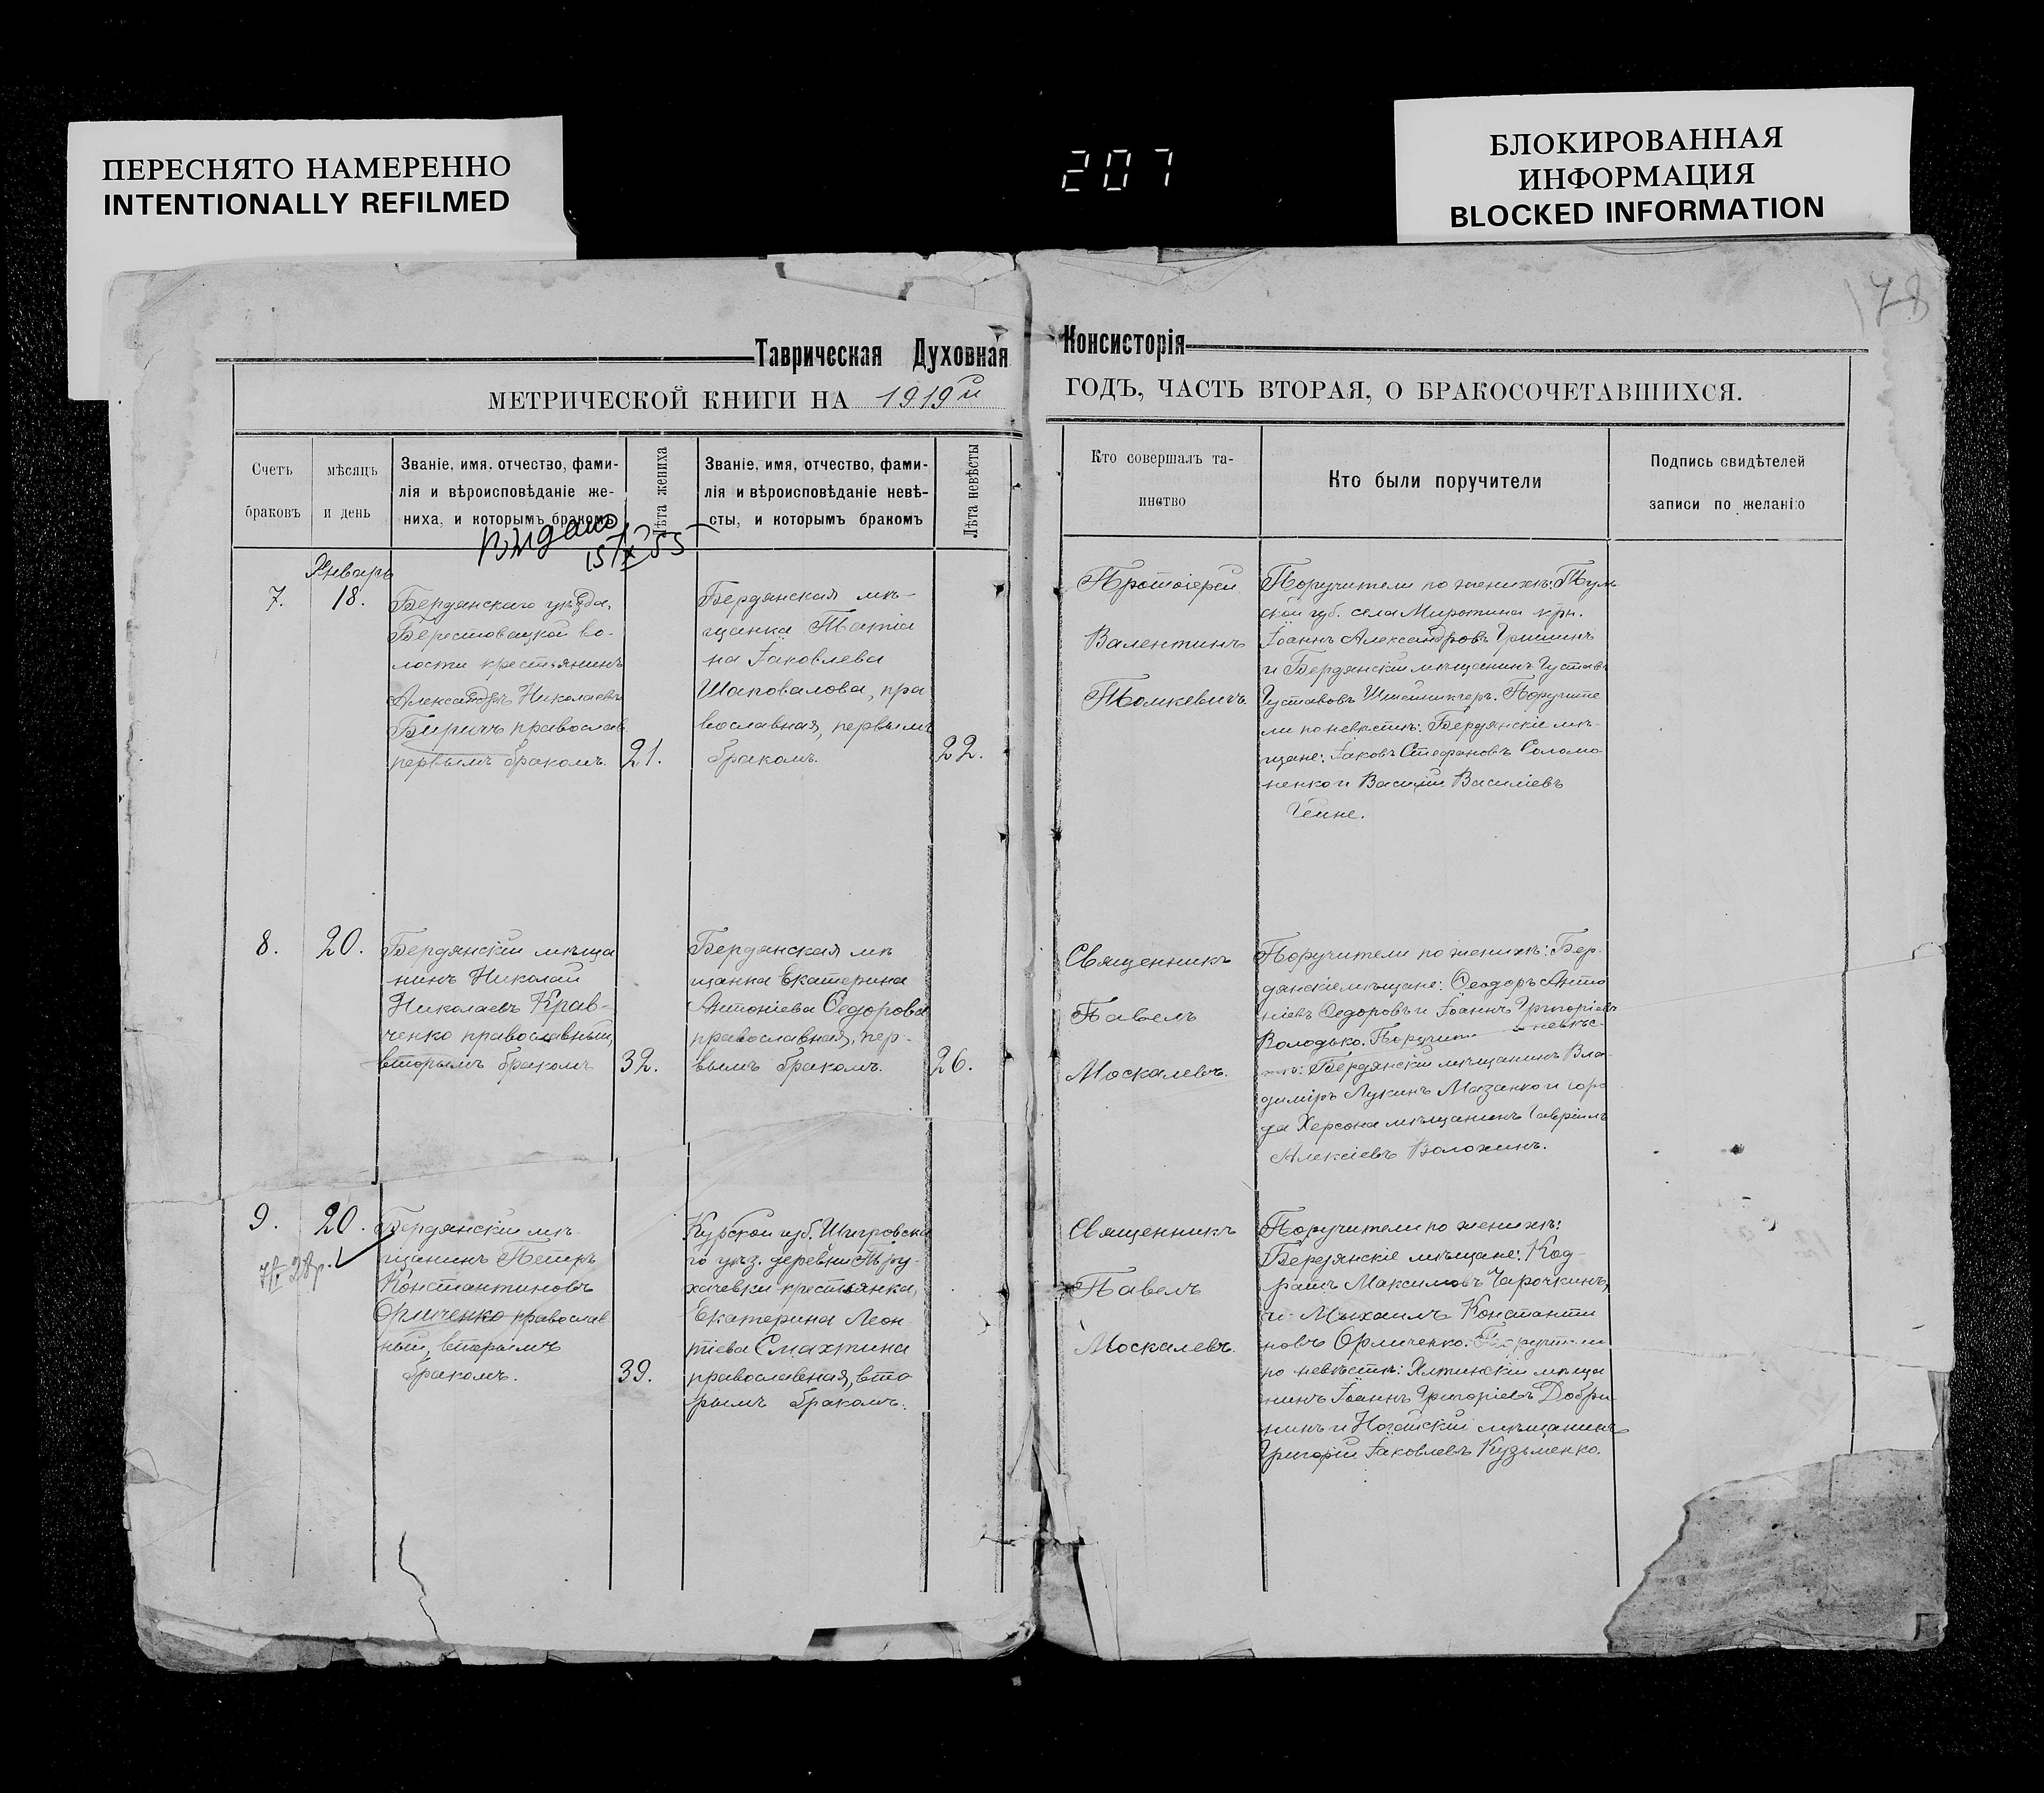 ПЕРЕСНЯТО НАМЕРЕННО
INTENTIONALLY REFILMED
207
БЛОКИРОВАННАЯ
ИНФОРМАЦИЯ
BLOCKED INFORMATION
178
Таврическая Духовная Консисторія
МЕТРИЧЕСКОЙ КНИГИ НА 1919й ГОДЪ, ЧАСТЬ ВТОРАЯ, О БРАКОСОЧЕТАВШИХСЯ.
Счетъ
браковъ
мѣсяцъ
и день
Званіе, имя, отчество, фами-
лія и вѣроисповѣданіе же-
ниха, и которымъ бракомъ
Лѣта жениха
Званіе, имя, отчество, фами-
лія и вѣроисповѣданіе невѣ-
сты, и которымъ бракомъ
Лѣта невѣсты
Кто совершалъ та-
инство
Кто были поручители
Подпись свидѣтелей
записи по желанію
Видано
15/X 55
Январь
7.
18.
Бердянскаго уѣзда,
Берестовацкой во-
лости крестьянинъ
Александръ Николаевъ
Биричъ православ.
первымъ бракомъ.
21.
Бердянская мѣ-
щанка Татіа
на Іаковлева
Шаповалова, пра
вославная, первымъ
бракомъ.
22.
Протоіерей
Валентинъ
Томкевичъ
Поручители по женихѣ: Тул
ской губ. села Миротина крн.
Іоаннъ Александровъ Гришинъ
и Бердянскій мѣщанинъ Густавъ
Густавовъ Поручите
ли по невѣстѣ: Бердянскіе мѣ-
щане: Іаковъ Стефановъ Соломо
ненко и Василій Василіевъ
Гейне.
8.
20.
Бердянскій мѣща
нинъ Николай
Николаевъ Крав-
ченко православный,
вторымъ бракомъ
32.
Бердянская мѣ
щанка Екатерина
Антоніева Ѳедорова
православная, пер-
вымъ бракомъ.
26.
Священникъ
Павелъ
Москалевъ.
Поручители по женихѣ: Бер-
дянскіе мѣщане: Ѳеодоръ Анто
ніевъ Ѳедоровъ и Іоаннъ Григоріевъ
Володько. невѣс-
тѣ: Бердянскій мѣщанинъ Вла-
диміръ Лукинъ Мазанко и горо
да Херсона мѣщанинъ Гавріилъ
Алексіевъ Волохинъ.
9.
20.
Бердянскій мѣ
щанинъ Петръ
Константиновъ
Орличенко православ
ный, вторымъ
бракомъ.
39.
Курской губ. Щигровска
го уѣз. деревни Тру-
хачевки крестьянка,
Екатерина Леон
тіева Смахтина
православная, вто
рымъ бракомъ.
Священникъ
Павелъ
Москалевъ.
Поручители по женихѣ:
Бердянскіе мѣщане: Код-
ратъ Максимовъ Чарочкинъ,
и Михаилъ Константи
новъ Орличенко. Поручители
по невѣстѣ: Ялтинскій мѣща
нинъ Іоаннъ Григоріевъ Добри
нинъ и Ногайскій мѣщанинъ
Григорій Іаковлевъ Кузьменко.